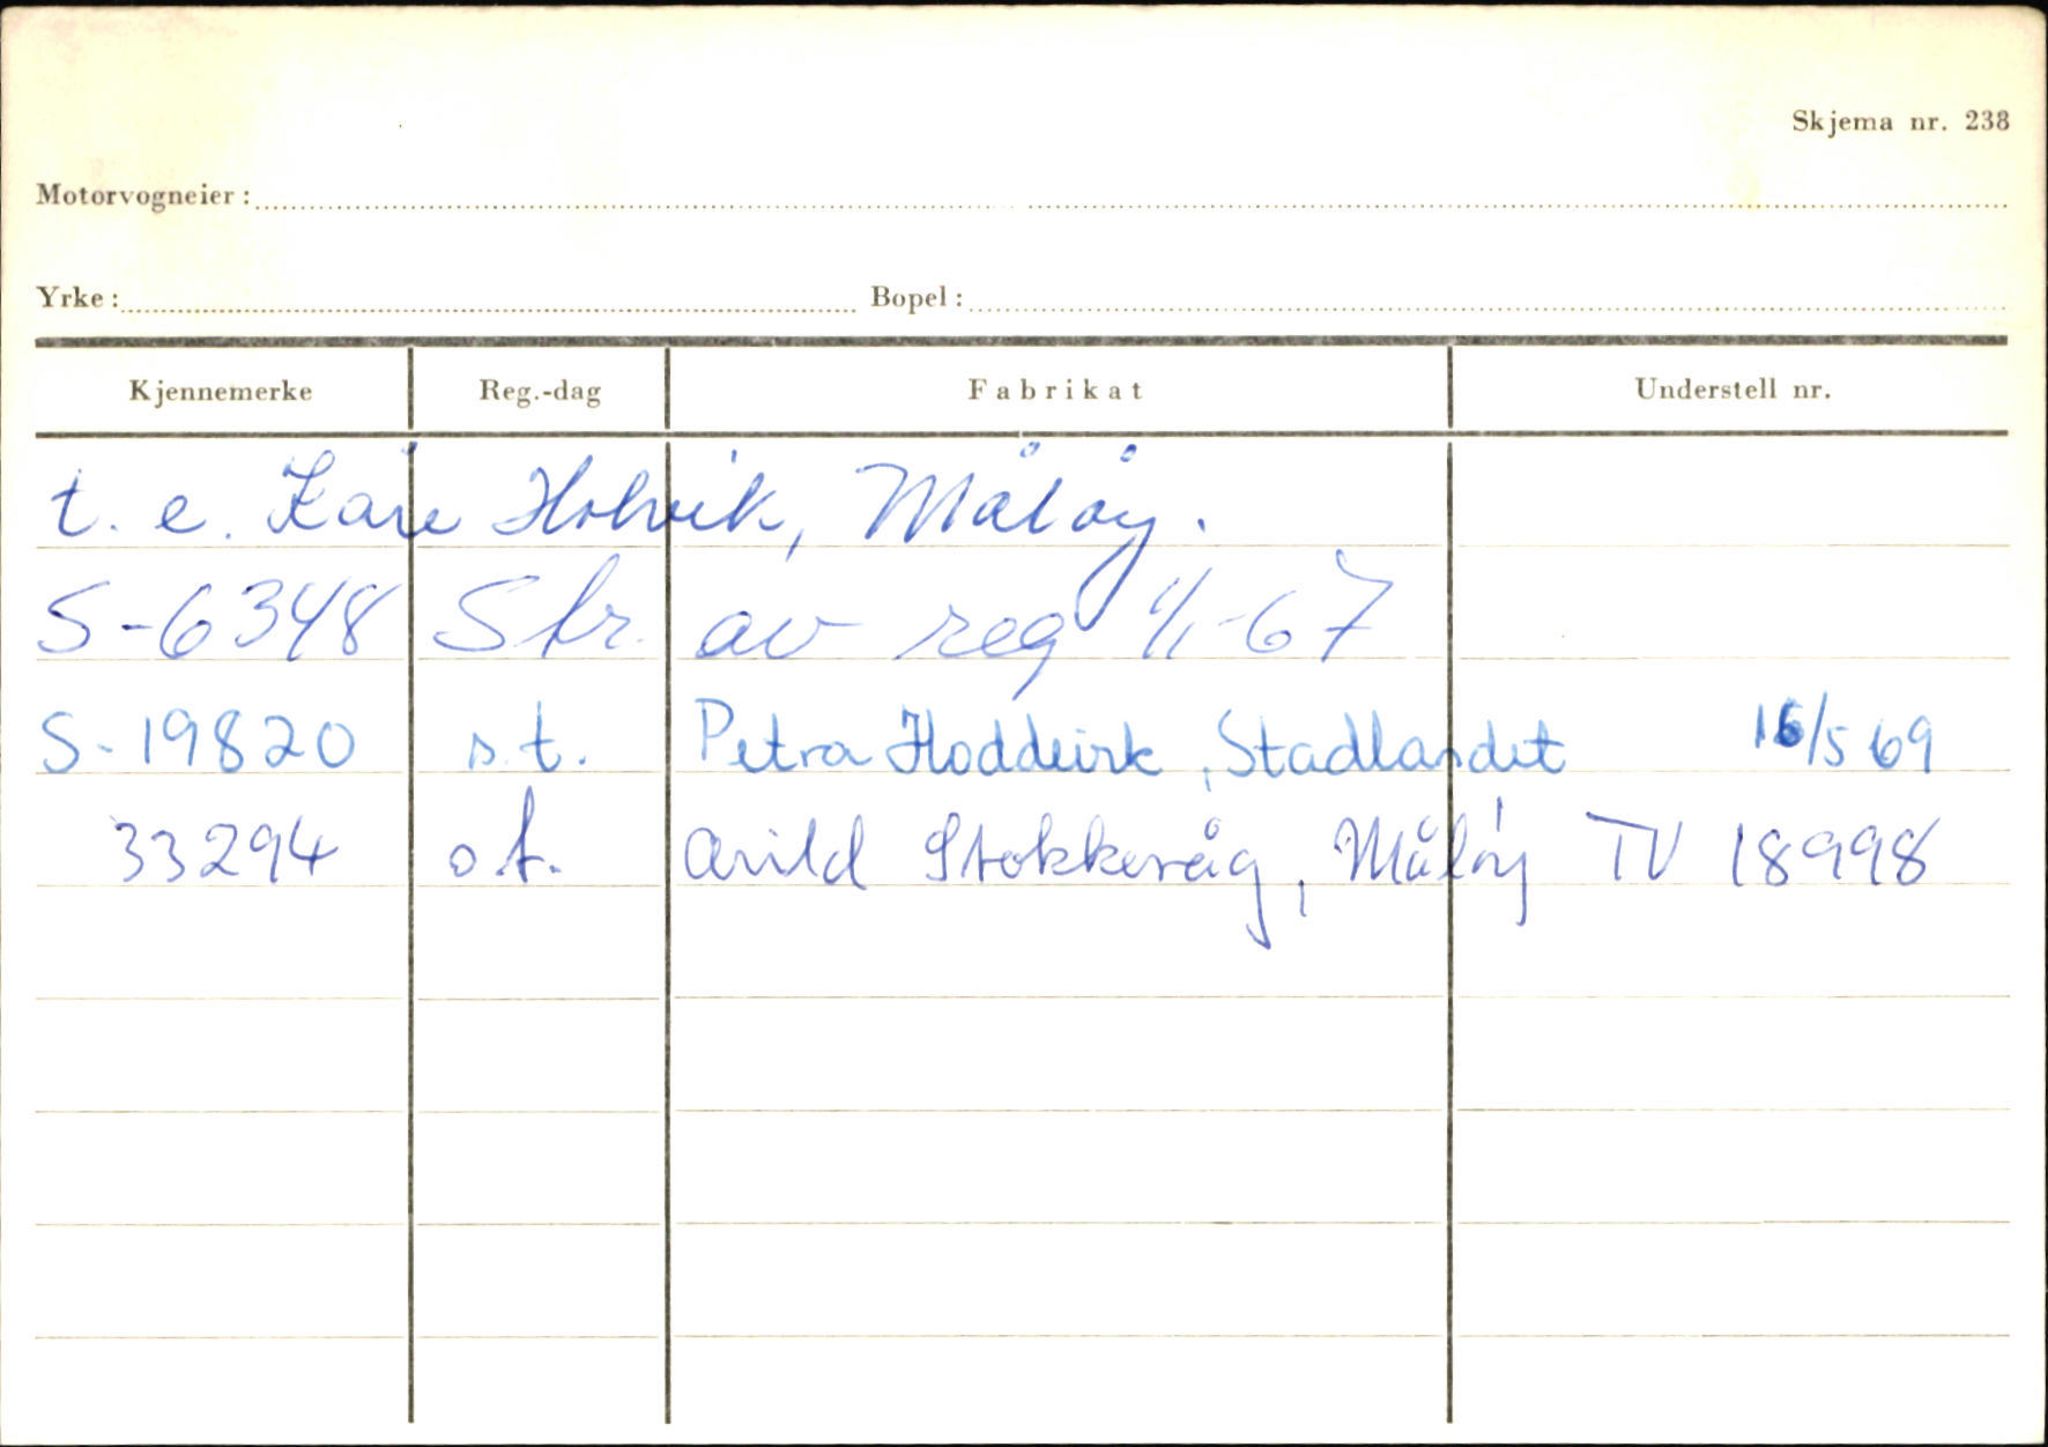 Skjema nr. 238
Motorvogneier:
Yrke: Bopel:
Kjennemerke Reg.-dag Fabrikat Understell nr.
t. e. Kåre Holvik, Måløy.
S-6348 Str. av reg 1/1-67
S-19820 s.t. Petra Hoddevik, Stadlandet 16/5 69
33294 o.f. Arild Stokkevåg, Måløy TV 18998